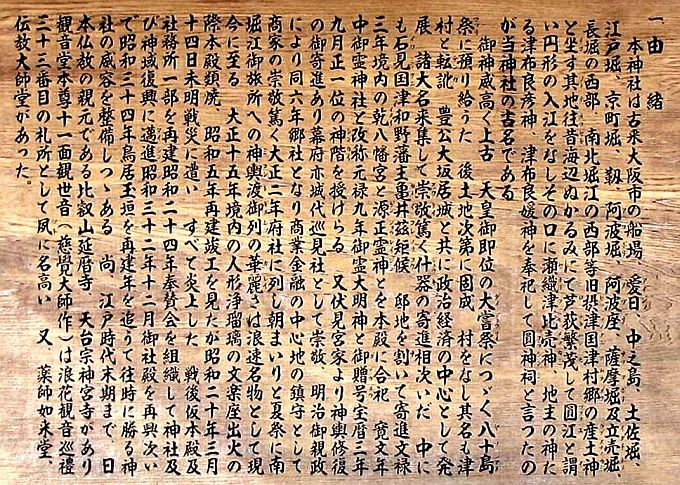 一由緒
本神社は古来大阪市の船場、愛日、中之島、土佐堀、
江戸堀、京町堀、靱、阿波堀、阿波座、薩摩堀及立売堀、
長堀の西部、南北堀江の西部等旧摂津国津村郷の産土神
と坐す其地往昔海辺ぬかるみにて芦荻繁茂して圓江と謂
い円形の入江をなしその口に瀬織津比売神、地主の神た
る津布良彦神、津布良媛神を奉祀して圓神祠と言つたの
が当神社の古名である
御神威高く上古 天皇御即位の大嘗祭につゞく八十島
祭に預り給うた 後土地次第に固成 村をなし其名も津
村と転訛 豊公大坂居城と共に政治経済の中心として発
展 諸大名来集して崇敬篤く什器の寄進相次いだ 中に
も石見国津和野藩主亀井茲矩候 邸地を割いて寄進文禄
三年境内の乾八幡宮と源正霊神とを本殿に合祀 寛文年
中御霊神社と改称元禄九年御霊大明神と御贈号宝暦三年
九月正一位の神階を授けらる 又伏見宮家より神輿修復
の御寄進あり幕府亦城代巡見社として崇敬、明治御親政
により同六年郷社となり商業金融の中心地の鎮守として
商家の崇敬篤く大正二年府社に列し朝まいりと夏祭に南
堀江御旅所への神輿渡御列の華麗さは浪速名物として現
今に至る 大正十五年境内の人形浄瑠璃の文楽座出火の
際本殿類焼 昭和五年再建竣工を見たが昭和二十年三月
十四日未明戦災に遭い すべて炎上した 戦後仮本殿及
社務所一部を再建昭和二十四年奉賛会を組織して神社及
び神域復興に邁進昭和三十二年十二月御社殿を再興次い
で昭和三十四年鳥居玉垣を再建年を追うて往時に勝る神
社の威容を整備しつゝある 尚 江戸時代末期まで、日
本仏教の親元である比叡山延暦寺、天台宗神宮寺があり
観音堂本尊十一面観世音(慈覺大師作)は浪花観音巡禮
三十三番目の礼所として夙に名高い 又 薬師如来堂、
伝教大師堂があった。